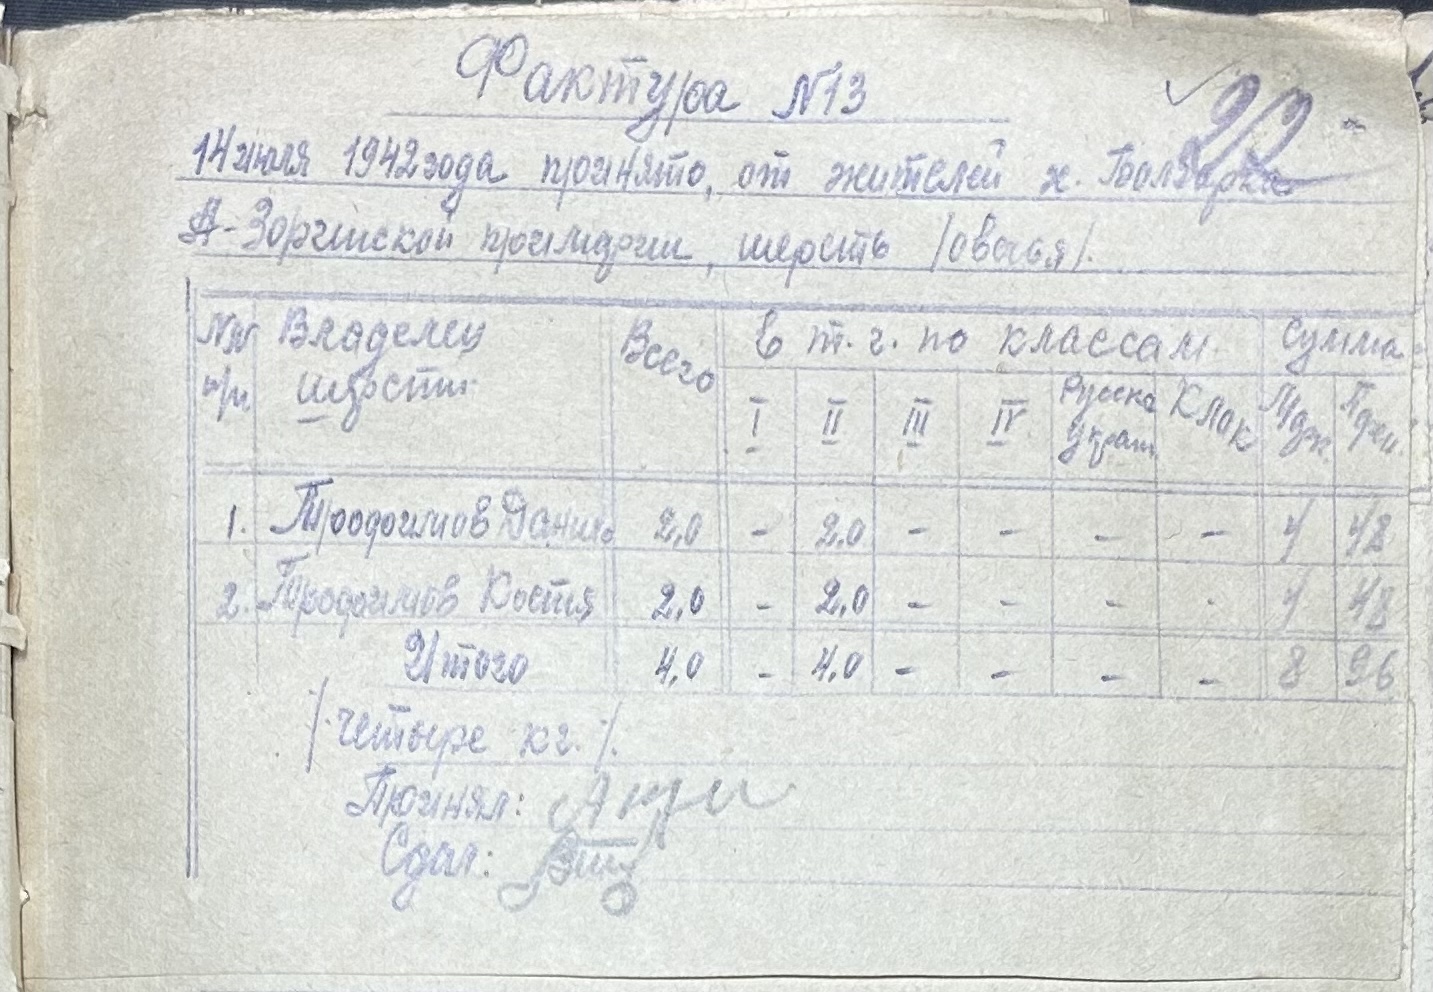 Фактура №13
22
14 июля 1942 года принято, от жителей х.
А-Зоргинской примарии, шерсть /овечья/.
№№ п/п. Владелец шерсти Всего В т. ч. по классам Сумма
I II III IV Русско Клок
1. Трофимов 2,0 - 2.0 - - - - 4 48
2. Трофимов Костя 2,0 - 2.0 - - - - 4 48
Итого 4,0 - 4.0 - - - - 8 96
/.четыре кг./.
Принял:
Сдал: